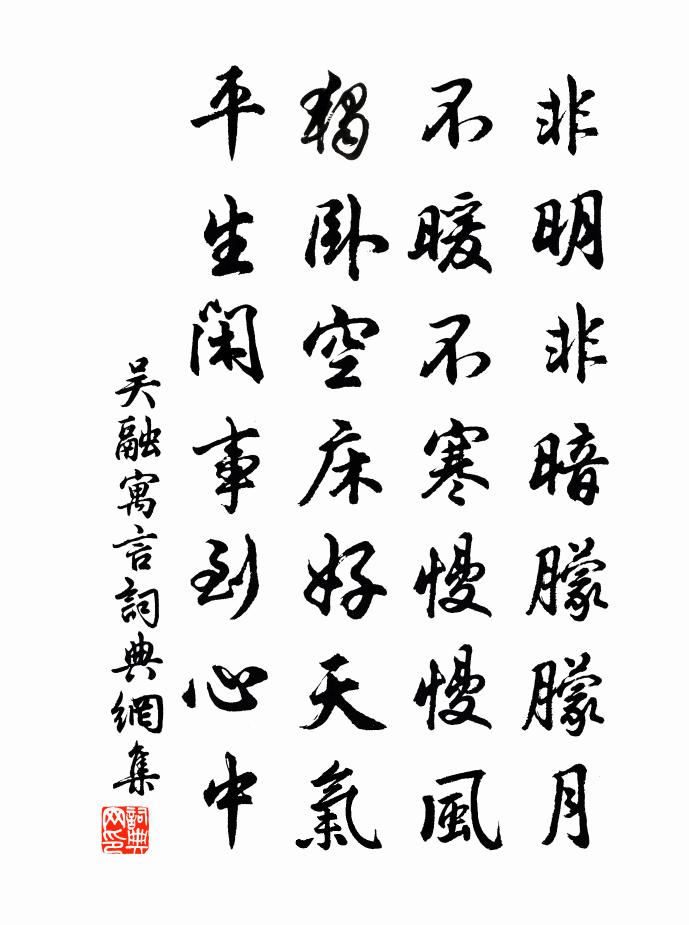 非明非暗朦朦月
不暖不寒慢慢風
獨卧空床好天氣
平生閑事到心中
吳融寓言詞典網集
詞典网印